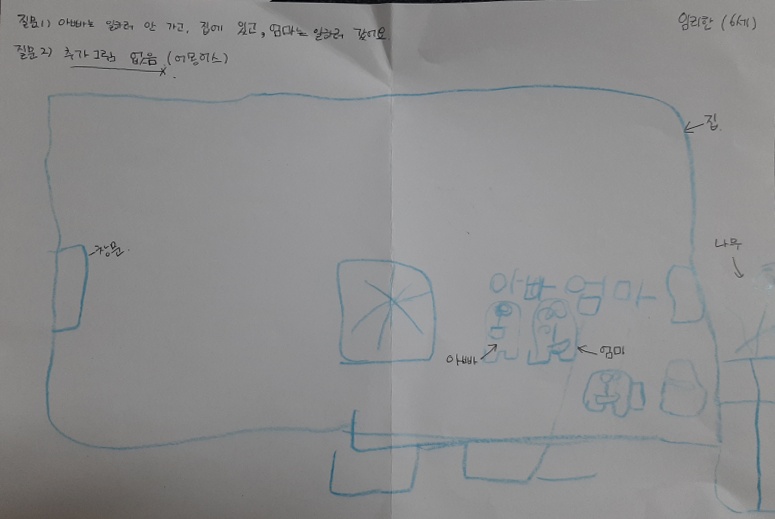 질문1) 아빠는 일하러 안 가고, 집에 있고, 엄마는 일하러 갔어요
임리환 (6세)
질문2) 추가그림 없음 (어몽어스)
집
창문
나무
아빠 엄마
아빠
엄마